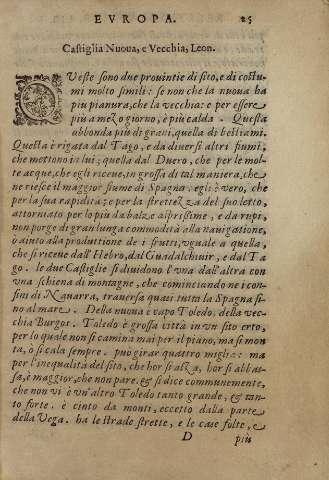 EVROPA. 25
Castiglia Nuoua, e Vecchia, Leon.
QVeste sono due prouintie di sito, e di costu
mi molto simili: se non che la nuoua ha
piu pianura, che la vecchia: e per essere
piu a mezo giorno, è piu calda. Questa
abbonda piu di grani, quella di bestiami.
Questa è rigata dal Tago, e da diuersi altri fiumi,
che mettono in lui; quella dal Duero, che per le mol-
te acque, che egli riceue, in grossa di tal maniera, che
ne riesce il maggior fiume di Spagna: egli è vero, che
per la sua rapidità; e per la strettezza del suo letto,
attorniato per lo più da balze asprissime, e da rupi,
non porge di gran lunga commodità alla nauigatione,
ò aiuto alla produttione de i frutti, vguale a quella,
che si riceue dall'Hebro, dal Guadalchiuir, e dal Ta
go. le due Castiglie si diuidono l'vna dall'altra con
vna schiena di montagne, che cominciando ne i con-
fini di Nauarra, trauersa quasi tutta la Spagna si-
no al mare. Della nuoua è capo Toledo, della vec-
chia Burgos. Toledo è grossa città in vn sito erto,
per lo quale non si camina mai per il piano, ma si mon
ta, ò si cala sempre. può girar quattro miglia: ma
per l'inequalità del sito, che hor si alza, hor si abbas-
sa, è maggior, che non pare. & si dice communemente,
che non vi è vn'altro Toledo tanto grande, & tan-
to forte. è cinto da monti, eccetto dalla parte
della Vega. ha le strade strette, e le case folte, e
D più